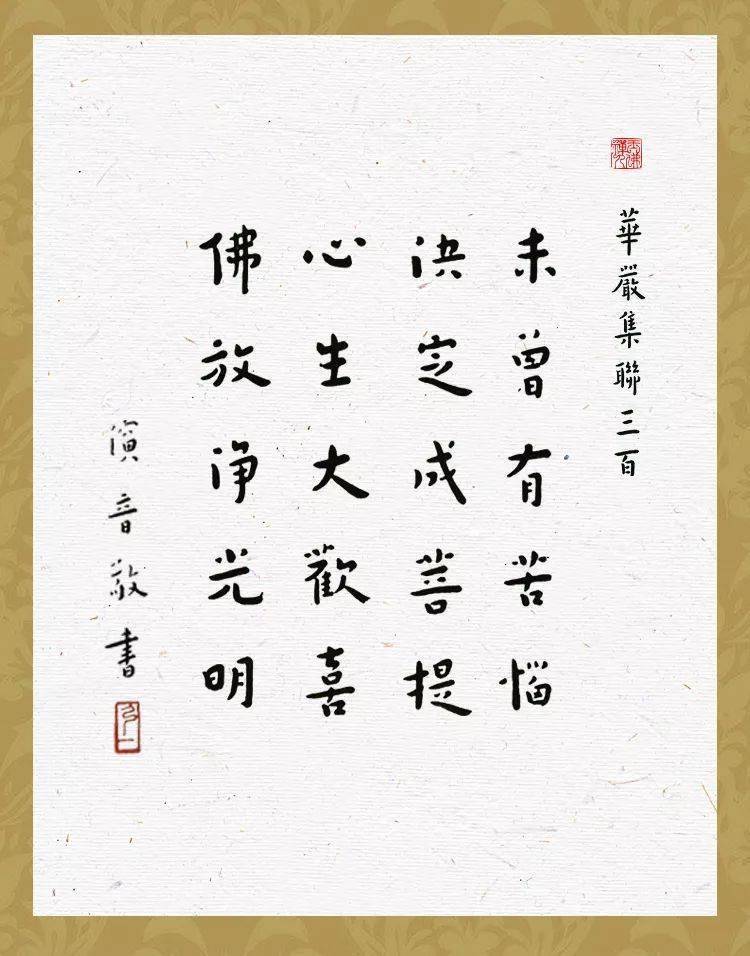 華嚴集聯三百
未曾有苦惱
決定成菩提
心生大歡喜
佛放淨光明
演音敬書